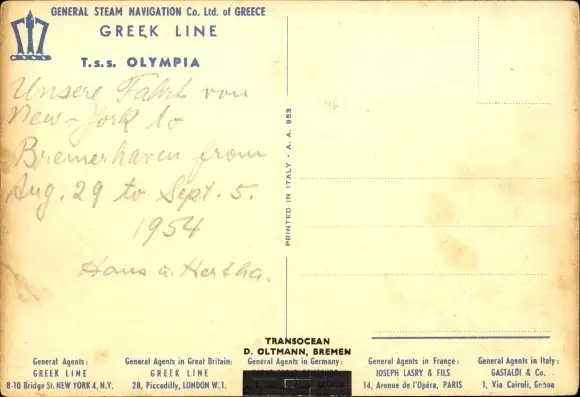 GENERAL STEAM NAVIGATION Co. Ltd. of GREECE
GREEK LINE
T.s.s. OLYMPIA
Unsere Fahrt von
New-York to
Bremerhaven from
Aug. 29 to Sept. 5.
1954
Hans u. Hertha.
PRINTED IN ITALY - A. A. 953
TRANSOCEAN
D. OLTMANN, BREMEN
General Agents:
GREEK LINE
8-10 Bridge St. NEW YORK 4, N.Y.
General Agents in Great Britain:
GREEK LINE
28, Piccadilly, LONDON W. 1.
General Agents in Germany:
General Agents in France:
JOSEPH LASRY & FILS
14, Avenue de l'Opéra, PARIS
General Agents in Italy:
GASTALDI & Co.
1, Via Cairoli, Genoa